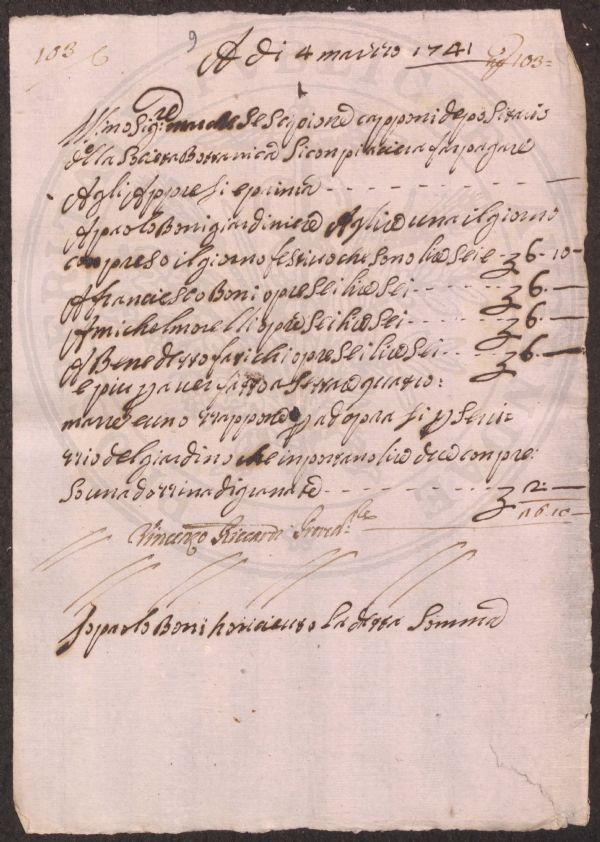 103 6 9 A di 4 marzzo 1741 103=
Illmo Sigre marchese Scipione capponi depositario
della Societa Bottanica Si conpiaciera far pagare
A gli Appresi e prima
A paolo Boni giardiniere A lire una il giorno
conpreso il giorno festivo che sono lire Sei e 6.10
A franciesco Boni opre Sei lire Sei 6.
A michel morelli opre Sei lire Sei 6.
A Benedetto farichi opre Sei lire Sei 6.
e piu p aver fatto aserrare quatro:
marre e uno zzappone p adoprasi p Servi-
zzio del giardino che inportano lire due conpre:
So una dozzina di granate 2.
26.10
Vincenzo Riccardi Provedre
Io paolo Boni ho riceuto la detta Somma